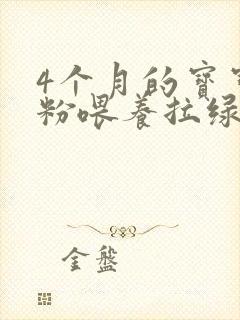 4个月的宝
粉喂养拉绿
金盤